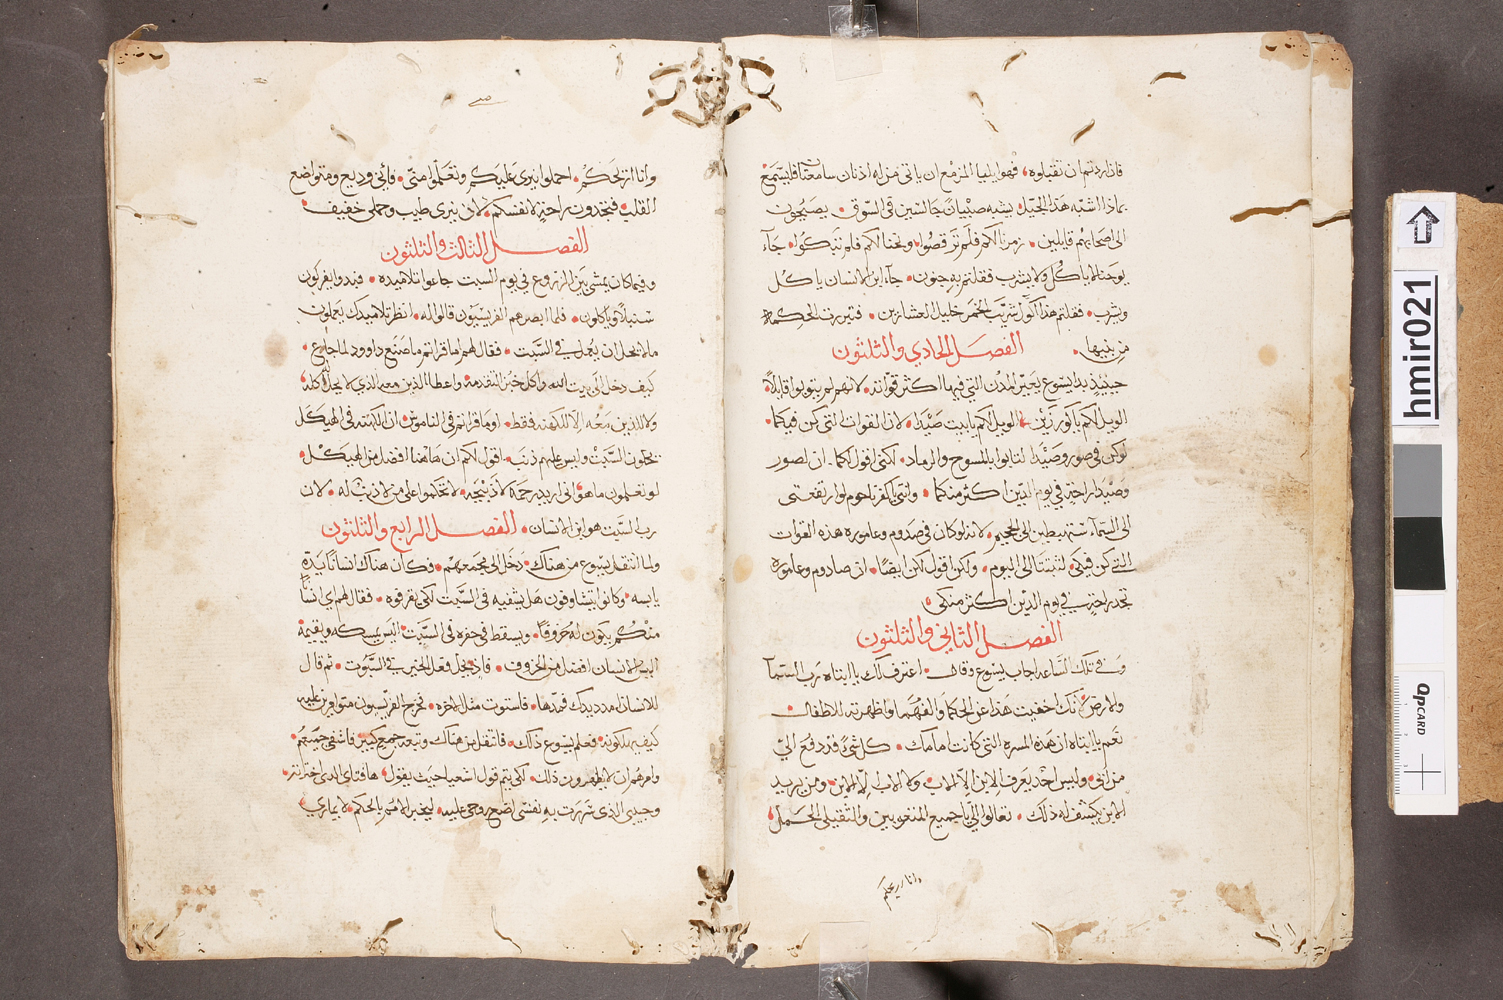 فان اردتم ان تقبلوه، فهو ايليا المزمع ان ياتي من له اذنان سامعتان فليستمع
بماذا اشبه هذا الجيل يشبه صبيانًا جالسين في السوق يصيحون
الى اصحابهم قايلين زمرنا لكم فلم ترقصوا ونحنا لكم فلم تبكوا جآء
يوحنا لا ياكل ولا يشرب فقلتم به جنون جآء ابن الانسان ياكل
ويشرب فقلتم هذا اكول شريب الخمر خليل العشارين فتبررت الحكمة
من بنيها
الفصل الحادي والثلثون
حينيذ بدا يسوع يعير المدن التي فيها اكثر قواته لانهم لم يتوبوا قايلًا
الويل لكم يا كورزين الويل لكم يا بيت صيدا لان القوات التي كن فيكما
لو كن في صور وصيدا لتابوا بالمسوح والرماد لكني اقول لكما ان لصور
وصيدا راحة في يوم الدين اكثر منكما وانتي يا كفرناحوم لو ارتفعتي
الى السمآء ستهبطين الى الجحيم لانه لو كان في صدوم وعاموره هذه القوات
التي كن فيكي لثبتتا الى اليوم ولكن اقول لكن ايضًا ان صادوم وعاموره
تجد راحة في يوم الدين اكثر منكي
الفصل الثاني والثلثون
وفي تلك الساعه اجاب يسوع وقال اعترف لك يا ابتاه رب السمآ
والارض لانك اخفيت هذا عن الحكما والفهما واظهرته للاطفال
نعم يا ابتاه ان هذه المسره التي كانت امامك كل شئ قد دفع الي
من ابي وليس احد يعرف الابن الا الاب ولا الاب الا الابن ومن يريد
الابن يكشف له ذلك تعالوا الي يا جميع المتعوبين والثقيلي الحمل
وانا اريحكم
وانا اريحكم احملوا نيري عليكم وتعلموا مني فاني وديع ومتواضع
القلب فتجدون راحة لانفسكم لان نيري طيب وحملي خفيف
الفصل الثالث والثلثون
وفيما كان يمشي بين الزروع في يوم السبت جاعوا تلاميذه فبدوا يفركون
سنبلًا وياكلون فلما ابصرهم الفريسيون قالوا له انظر تلاميذك يعملون
ما لا يحل ان يعمل في السبت فقال لهم اما قراتم ما صنع داوود لما جاع
كيف دخل الى بيت الله واكل خبز التقدمة واعطا الذين معه الذي لا يحل له اكله
ولا للذين معه الا للكهنه فقط او ما قراتم في الناموس ان الكهنه في الهيكل
يحلون السبت وليس عليهم ذنب اقول لكم ان هاهنا افضل من الهيكل
لو تعلمون ما هو اني اريد رحمة لا ذبيحه لا تحكموا على من لا ذنب له لان
رب السبت هو ابن الانسان الفصل الرابع والثلثون
ولما انتقل يسوع من هناك دخل الى مجمعهم وكان هناك انسانًا يده
يابسه وكانوا يتشاوفون هل يشفيه في السبت لكي يقرفوه فقال لهم اي انسانًا
منكم يكون له خروفًا ويسقط في حفره في السبت اليس يمسكه ويقيمه
اليس الانسان افضل من الخروف فاذ يحل فعل الخير في السبوت ثم قال
للانسان امدد يدك فمدها فاستوت مثل الاخره فخرج الفريسيون متوامرين عليه
كيف يهلكونه فعلم يسوع ذلك فانتقل من هناك وتبعه جمع كبير فاشفى جميعهم
وامرهم ان لا يظهرون ذلك لكي يتم قول اشعيا حيث يقول ها فتاي الذي اخترته
وحبيبي الذي سُرّت به نفسي اضع روحي عليه ليخبر الامم بالحكم لا يماري
hmir021
QPCARD